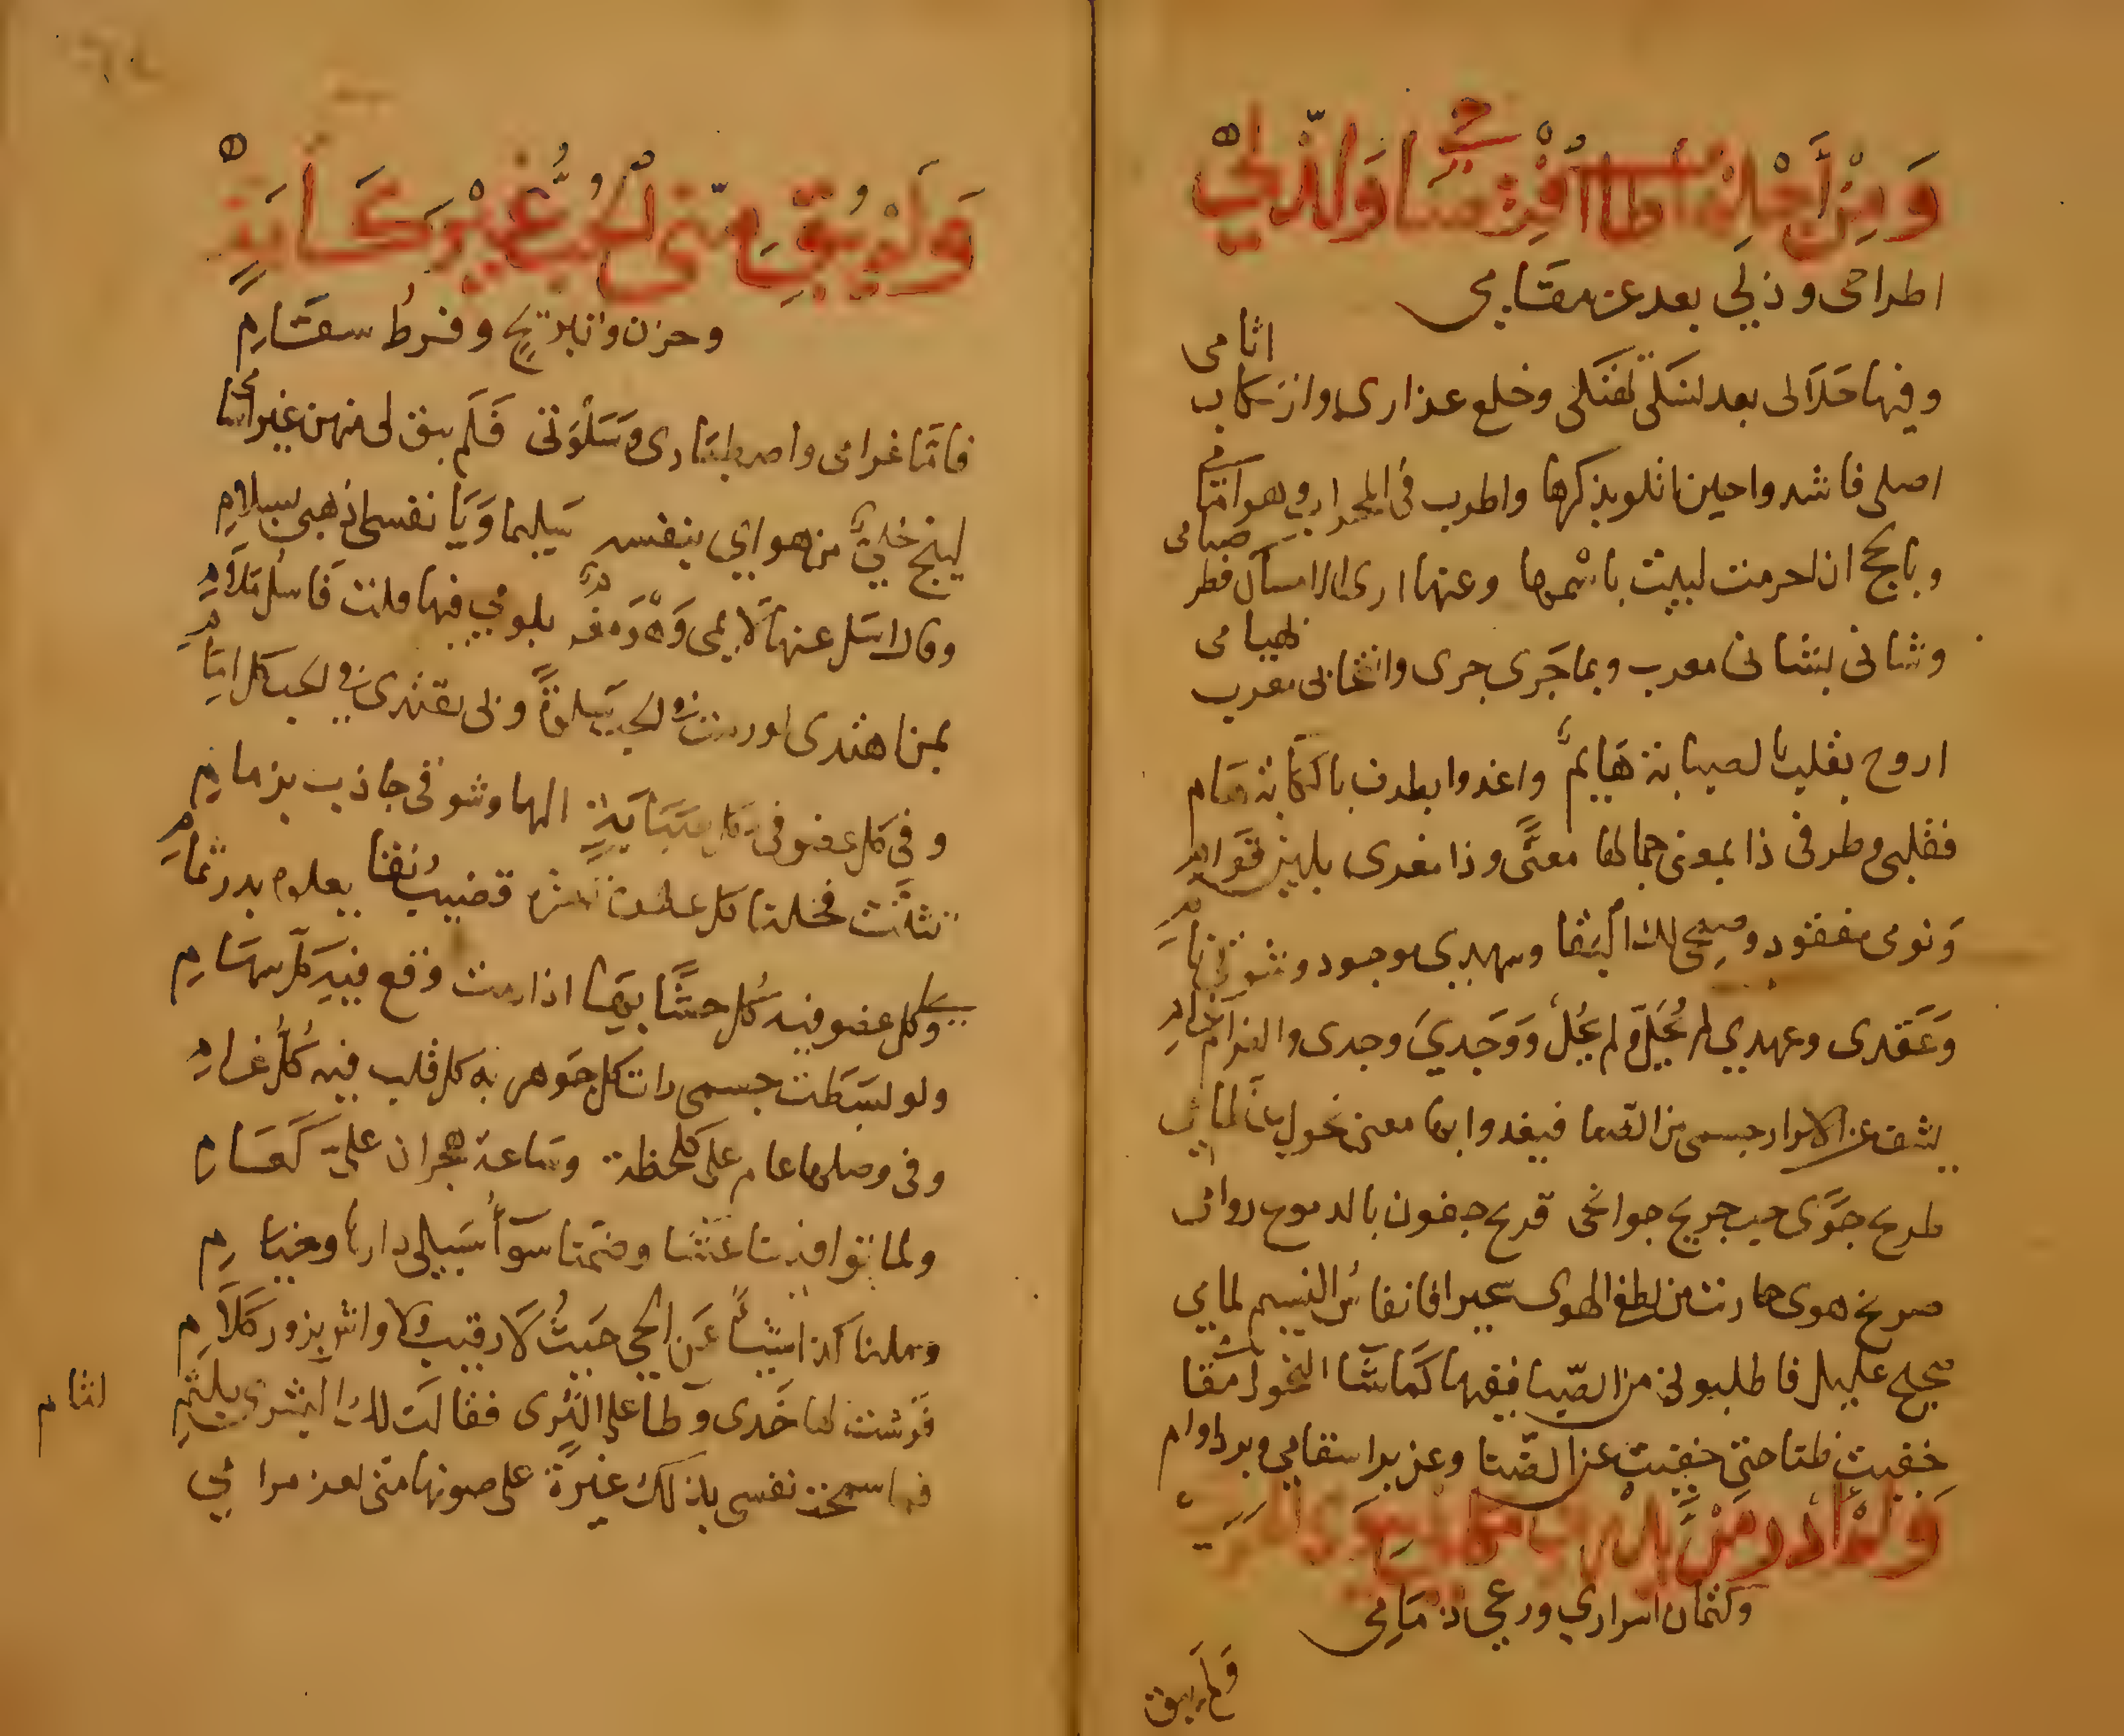 وَمِنْ أَجْلِهَا طَابَ افْتِضَاحِي وَلَذَّ لِي
اطراحى وذلي بعد عز مقامي
وفيها حَلَالى بعد نسكي تهتكى وخلع عذارى وارتكاب اثامى
اصلى فاشدوا حين اتلو بذكرها واطرب فى المحراب وهى امامى
وبالحج ان احرمت لبيت باسمها وعنها ارى الامساك فطر صيامى
وشانى بشانى معرب وبما جَرى جرى وانتحابى معرب بهيامى
اروح بقلب بالصبابة هَايم واغدوا بطرف بالكابة هَام
فقلبى وطرفى ذا بمعنى جمالها معنًّى وذا مغرى بلين قوام
وَنومى مفقود وصبحى لك البقا وسهدي موجود وشوقى نام
وَعَقدى وعهدي لم يُحَلّ ولم يحُلْ وَوَجدي وجدى والغرام غرام
يشف عن الاسرار جسمى من الضنا فيغدوا بها معنى نحول عظامى
طريح جَوًى حب جريح جوانحى قريح جفون بالدموع دوامى
صريخ هوى جاريت من لطفى الهوى سحيرا فانفاسُ النسيم لمامي
صحيح عليل فاطلبونى من الصّبا ففيها كما شاء النحول مقامى
خفيت ضنا حتى خفيت عن الضّنا وعن برء اسقامي وبرد اوام
وَلَمْ أَدْرِ مَنْ يَدْرِي مَكَانِي سِوَى الْهَوَى
وكتمان اسراري ورعي ذمَامِى
وَلَم يبق
وَلَمْ يُبْقِ مِنِّى الْحُبُّ غَيْرَ كَآبَةٍ
وحزن وتبريحٍ وفرطُ سقَامِ
فامَّا غرامى واصطبارى وَسَلْوَتى فَلَم يبق لى منهن غير اسامى
لينج خليٌّ من هواي بنفسه سَليما وَيَا نفسى اذهبى بسلامِ
وقال اسَل عنها لايمى وَهْوَ مغرمٌ بلومي فيها قلت فَاسْلُ مَلَامِ
بمن اهتدى لو رمت فى الحب سَلوةً وبى يقتدى فى الحب كل امَامِ
وفي كل عضو فى كل صَبَابَةٍ اليها وشوقى جاذب بزمامِ
تثنَّت فخلنا كل عطف تهزه قضيبُ نقًا يعلوه بدر تَمَامِ
وَلى كل عضو فيه كُل حشًّا بِهَا اذا رمت وقع فيهِ كل سهَامِ
ولو بسَطَت جسمى رات كل جَوهر به كل قلب فيه كُلُّ غرام
وفى وصلها عام على كلحظة وسَاعة هجران عليَّ كعَام
ولما توافينا عشا وضمنا سَوآءُ سَبيلى دارها وخيَامِ
وملنا كذا شيئاً عَن الحي حَيثُ لَا رقيب ولا واش بزور كَلَامِ
فرشت لها خَدى وطاء على الثرى فقالت لك البشرى بلثم لثام
فما سمحت نفسى بذلك غيرةً على صونها منى لعز مرامي